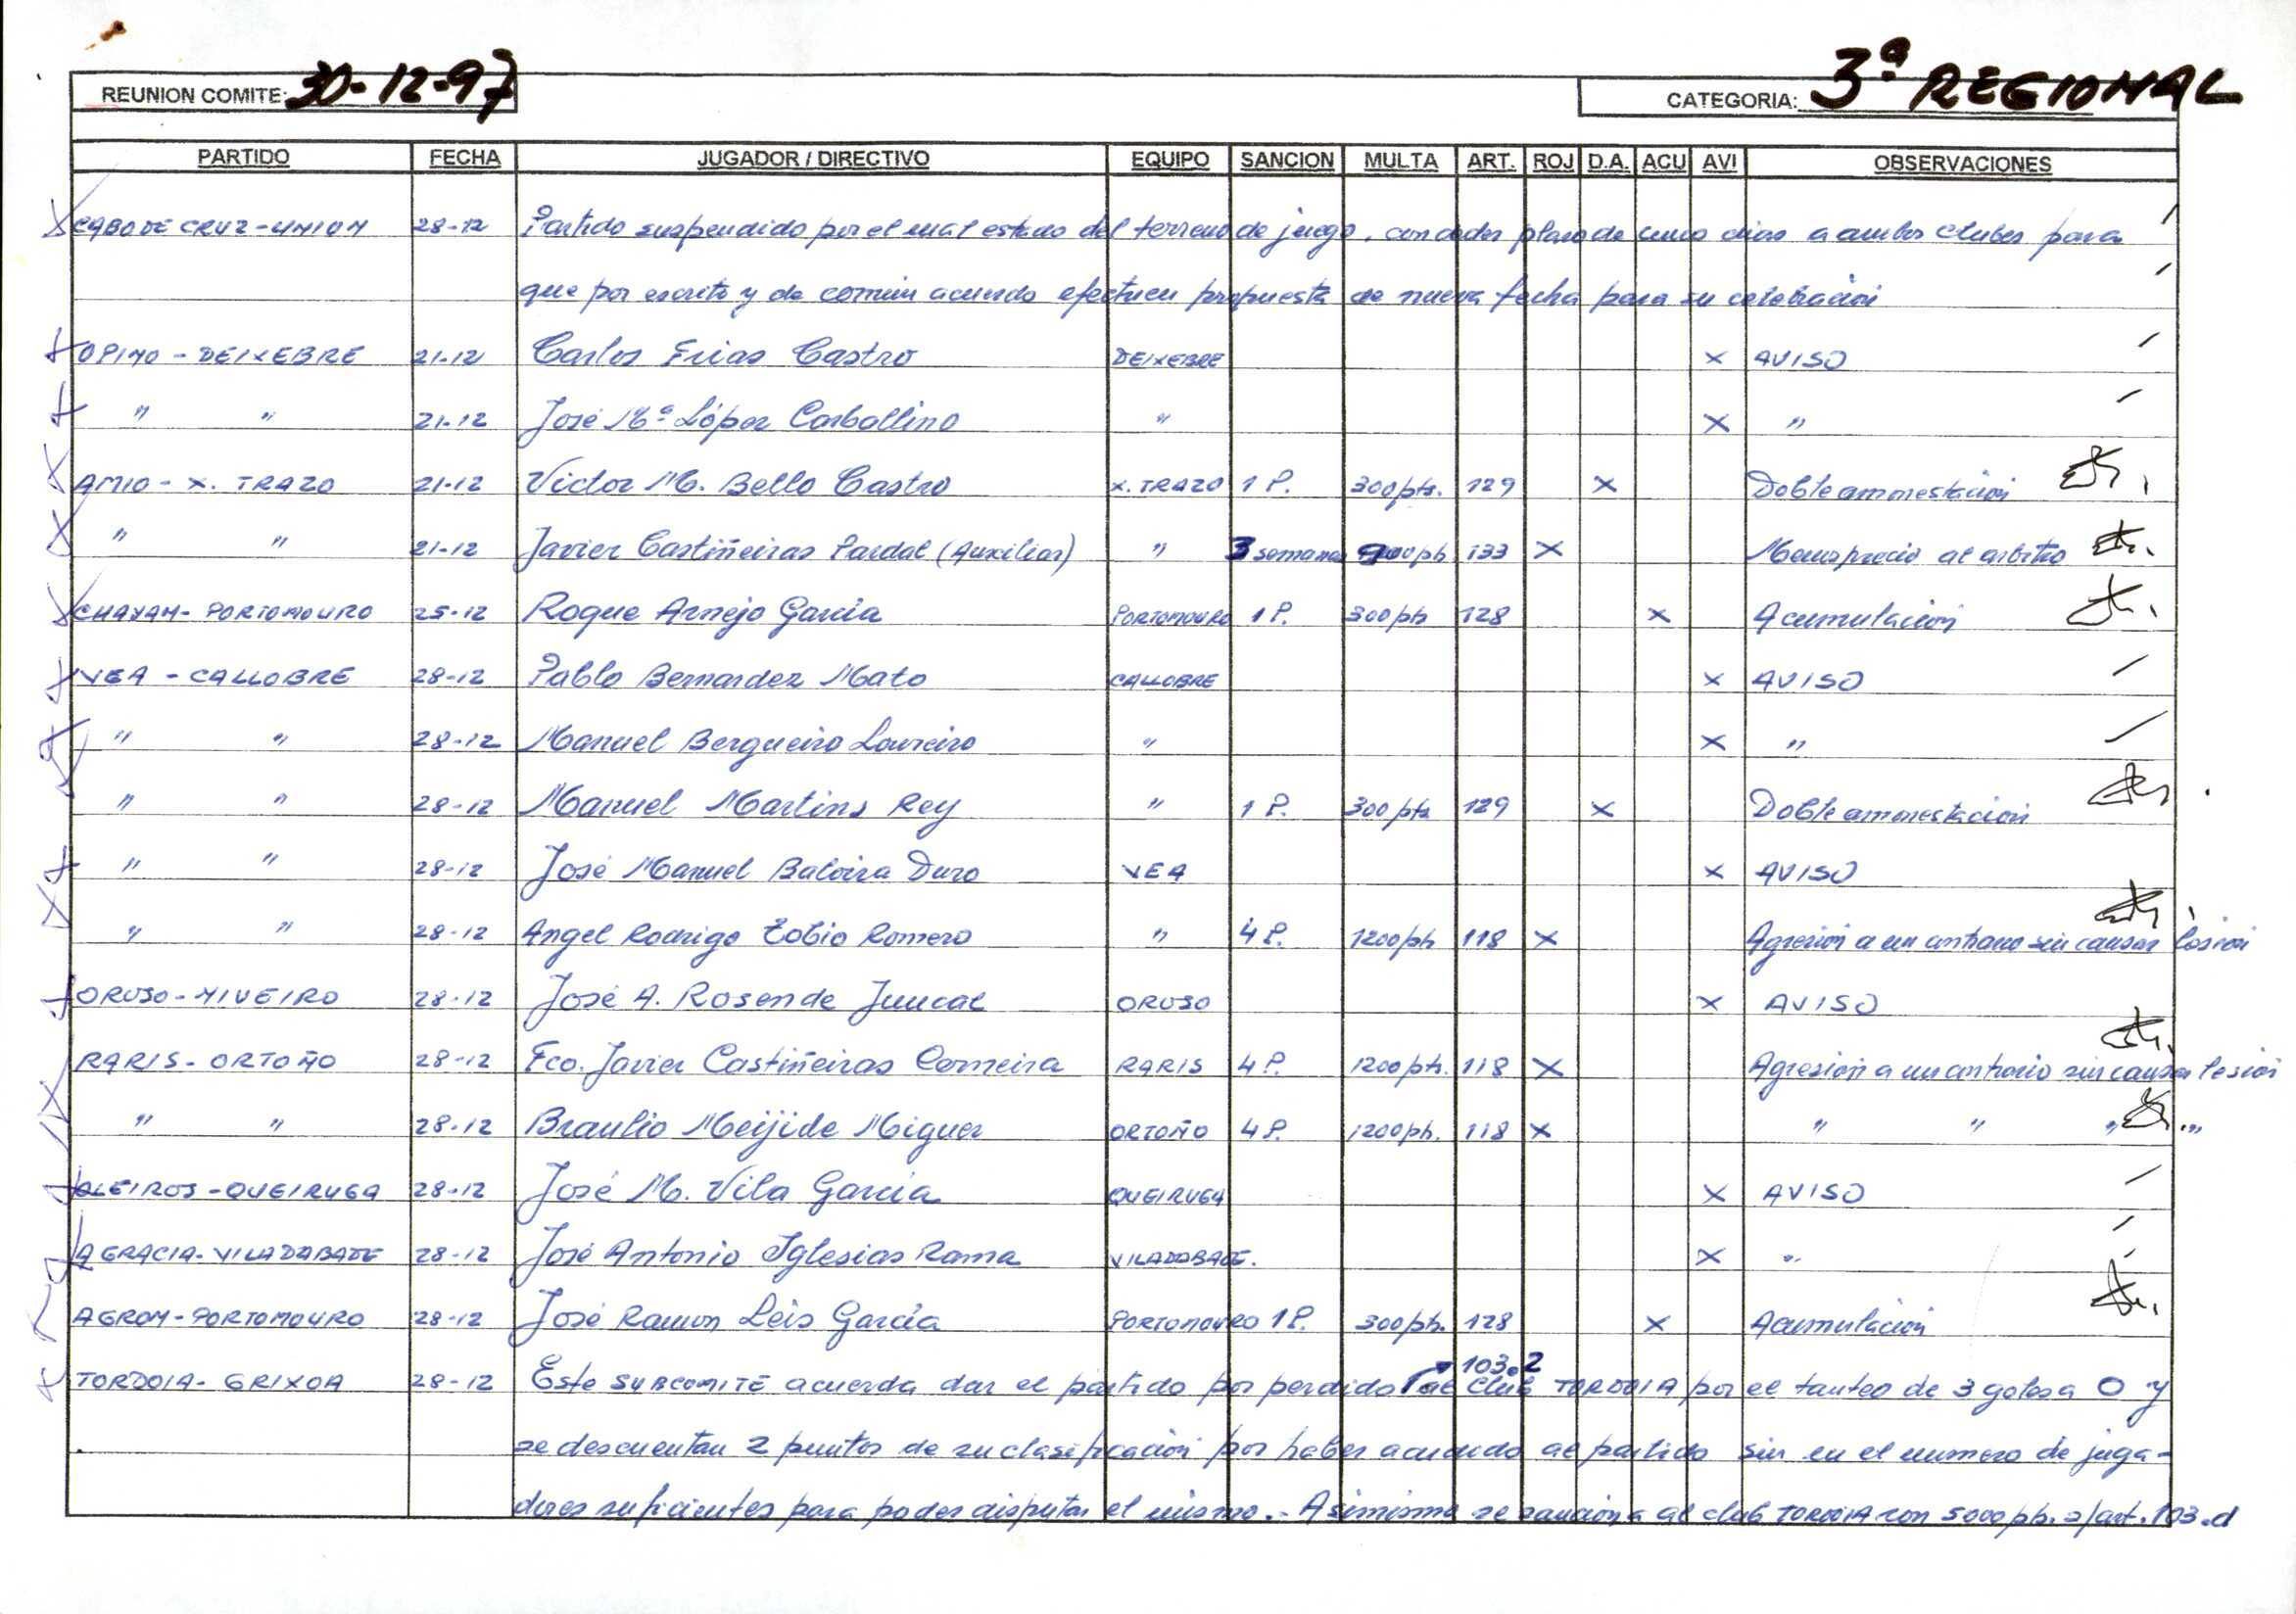 REUNION COMITE: 30-12-97 CATEGORIA: 3ª REGIONAL
PARTIDO FECHA JUGADOR / DIRECTIVO EQUIPO SANCION MULTA ART. ROJ D.A. ACU AVI OBSERVACIONES
X CABO DE CRUZ - UNION 28-12 Partido suspendido por el mal estado del terreno de juego, conceder plazo de cinco dias a ambos clubes para
que por escrito y de común acuerdo efectuen propuesta de nueva fecha para su celebración
OPINO - DEIXEBRE 21-12 Carlos Frias Castro DEIXEBRE X AVISO
" " 21-12 José Mª López Carballino " X "
AMIO - X. TRAZO 21-12 Victor M. Bello Castro X. TRAZO 1 P. 300 pts. 129 X Doble amonestación
" " 21-12 Javier Castiñeiras Pardal (Auxiliar) " 3 semanas 900 pts. 133 X Menosprecio al arbitro
CHAYAN - PORTOMOURO 25-12 Roque Arnejo Garcia PORTOMOURO 1 P. 300 pts 128 X Acumulación
VEA - CALLOBRE 28-12 Pablo Bernardez Mato CALLOBRE X AVISO
" " 28-12 Manuel Bergueiro Loureiro " X "
" " 28-12 Manuel Martins Rey " 1 P. 300 pts 129 X Doble amonestación
" " 28-12 José Manuel Baloira Duro VEA X AVISO
" " 28-12 Angel Rodrigo Tobio Romero " 4 P. 1200 pts 118 X Agresión a un contrario sin causar lesión
OROSO - NIVEIRO 28-12 José A. Rosende Juncal OROSO X AVISO
RARIS - ORTOÑO 28-12 Fco. Javier Castiñeiras Corneira RARIS 4 P. 1200 pts. 118 X Agresión a un contrario sin causar lesión
" " 28-12 Braulio Meijide Miguez ORTOÑO 4 P. 1200 pts. 118 X " " " "
OLEIROS - QUEIRUGA 28-12 José M. Vila Garcia QUEIRUGA X AVISO
A GRACIA - VILADABADE 28-12 José Antonio Iglesias Rama VILADABADE. X "
AGRON - PORTOMOURO 28-12 José Ramon Leis García PORTOMOURO 1 P. 300 pts. 128 X Acumulación
103.2
TORDOIA - GRIXOA 28-12 Este SUBCOMITÉ acuerda dar el partido por perdido al Club TORDOIA por el tanteo de 3 goles a 0 y
se descuentan 2 puntos de su clasificación por haber acudido al partido sin en el numero de juga-
dores suficientes para poder disputar el mismo.- Asimismo se sanciona al club TORDOIA con 5000 pts. s/art. 103.d